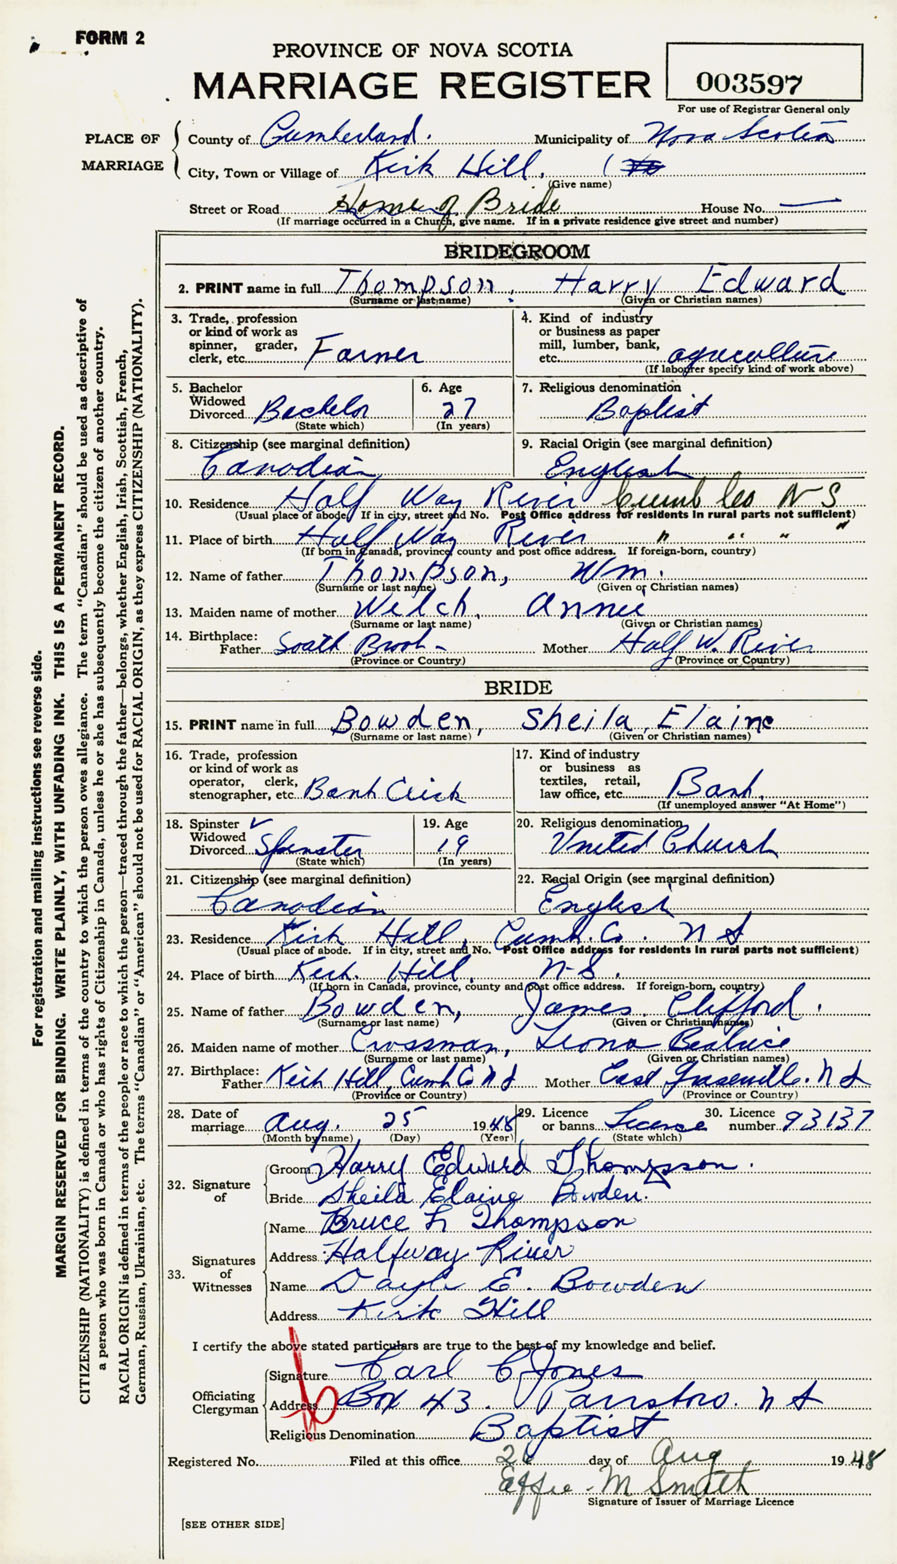 FORM 2
PROVINCE OF NOVA SCOTIA
MARRIAGE REGISTER
003597
For use of Registrar General only
PLACE OF MARRIAGE
County of Cumberland. Municipality of Nova Scotia
City, Town or Village of Kirk Hill.
(Give name)
Street or Road Home of Bride House No.
(If marriage occurred in a Church, give name. If in a private residence give street and number)
BRIDEGROOM
2. PRINT name in full Thompson, Harry Edward
(Surname or last name) (Given or Christian names)
3. Trade, profession or kind of work as spinner, grader, clerk, etc. Farmer
4. Kind of industry or business as paper mill, lumber, bank, etc. agriculture
(If laborer specify kind of work above)
5. Bachelor Widowed Divorced Bachelor
(State which)
6. Age 27
(In years)
7. Religious denomination Baptist
8. Citizenship (see marginal definition)
Canadian
9. Racial Origin (see marginal definition)
English
10. Residence Half Way River Cumb Co N S
(Usual place of abode. If in city, street and No. Post Office address for residents in rural parts not sufficient)
11. Place of birth Half Way River " " " "
(If born in Canada, province, county and post office address. If foreign-born, country)
12. Name of father Thompson, Wm.
(Surname or last name) (Given or Christian names)
13. Maiden name of mother Welch, Annie
(Surname or last name) (Given or Christian names)
14. Birthplace: Father South Brook - Mother Half W. River
(Province or Country) (Province or Country)
BRIDE
15. PRINT name in full Bowden, Sheila Elaine
(Surname or last name) (Given or Christian names)
16. Trade, profession or kind of work as operator, clerk, stenographer, etc. Bank Clerk
17. Kind of industry or business as textiles, retail, law office, etc. Bank.
(If unemployed answer "At Home")
18. Spinster ✓ Widowed Divorced Spinster
(State which)
19. Age 19
(In years)
20. Religious denomination
United Church
21. Citizenship (see marginal definition)
Canadian
22. Racial Origin (see marginal definition)
English
23. Residence Kirk Hill, Cumb. Co. N S
(Usual place of abode. If in city, street and No. Post Office address for residents in rural parts not sufficient)
24. Place of birth Kirk Hill, N-S.
(If born in Canada, province, county and post office address. If foreign-born, country)
25. Name of father Bowden, James Clifford.
(Surname or last name) (Given or Christian names)
26. Maiden name of mother Crossman, Leona Beatrice
(Surname or last name) (Given or Christian names)
27. Birthplace: Father Kirk Hill, Cumb Co N S Mother East N S
(Province or Country) (Province or Country)
28. Date of marriage Aug. 25 1948
(Month by name) (Day) (Year)
29. Licence or banns License
(State which)
30. Licence number 93137
32. Signature of
Groom Harry Edward Thompson.
Bride Sheila Elaine Bowden.
33. Signatures of Witnesses
Name Bruce L Thompson
Address Halfway River
Name Dayle E. Bowden
Address Kirk Hill
I certify the above stated particulars are true to the best of my knowledge and belief.
Officiating Clergyman
Signature Carl C Jones
Address Box 43. Parrsboro. N S
Religious Denomination Baptist
Registered No. Filed at this office 26 day of Aug 1948
Effie M Smith
Signature of Issuer of Marriage Licence
[SEE OTHER SIDE]
For registration and mailing instructions see reverse side.
MARGIN RESERVED FOR BINDING. WRITE PLAINLY, WITH UNFADING INK. THIS IS A PERMANENT RECORD.
CITIZENSHIP (NATIONALITY) is defined in terms of the country to which the person owes allegiance. The term "Canadian" should be used as descriptive of
a person who was born in Canada or who has rights of Citizenship in Canada, unless he or she has subsequently become the citizen of another country.
RACIAL ORIGIN is defined in terms of the people or race to which the person—traced through the father—belongs, whether English, Irish, Scottish, French,
German, Russian, Ukrainian, etc. The terms "Canadian" or "American" should not be used for RACIAL ORIGIN, as they express CITIZENSHIP (NATIONALITY).